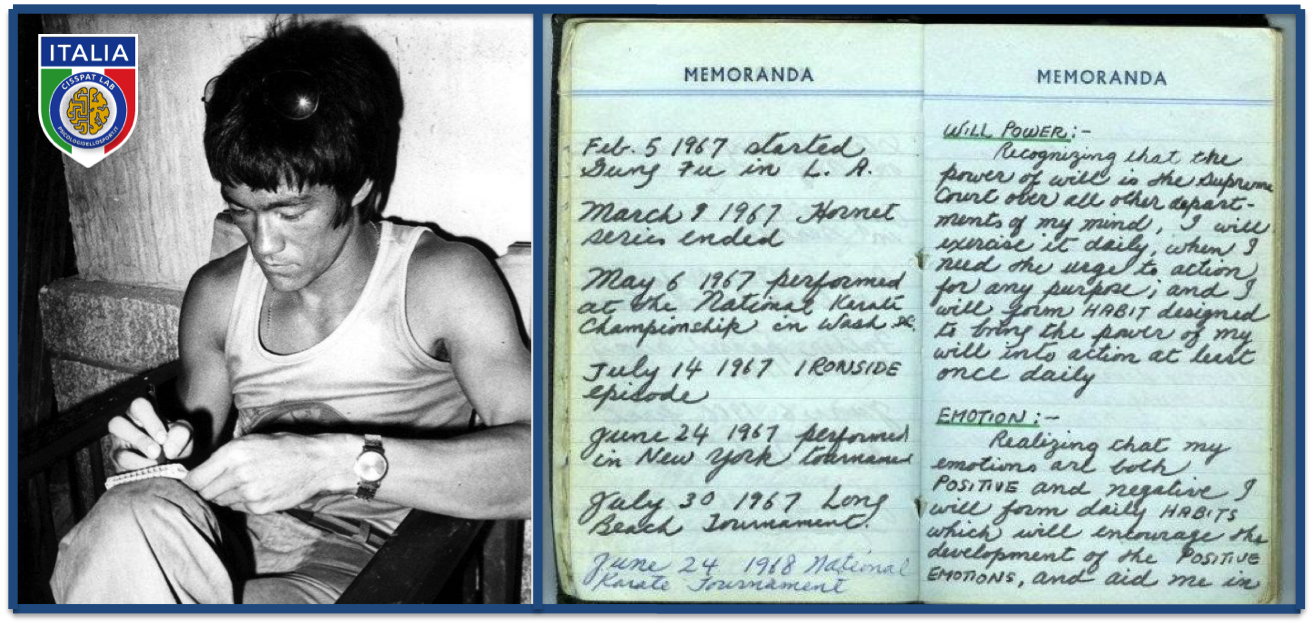 ITALIA
CISSPAT LAB
PSICOLOGIDELLOSPORT.IT
MEMORANDA
Feb. 5 1967 started
Gung Fu in L. A.
March 9 1967 Hornet
series ended
May 6 1967 performed
at the National Karate
Championship in Wash DC.
July 14 1967 IRONSIDE
episode
June 24 1967 performed
in New York tournament
July 30 1967 Long
Beach Tournament.
June 24 1968 National
Karate Tournament
MEMORANDA
WILL POWER:-
Recognizing that the
power of will is the Supreme
Court over all other depart-
ments of my mind, I will
exercise it daily, when I
need the urge to action
for any purpose; and I
will form HABIT designed
to bring the power of my
will into action at least
once daily
EMOTION:-
Realizing that my
emotions are both
POSITIVE and negative I
will form daily HABITS
which will encourage the
development of the POSITIVE
EMOTIONS, and aid me in